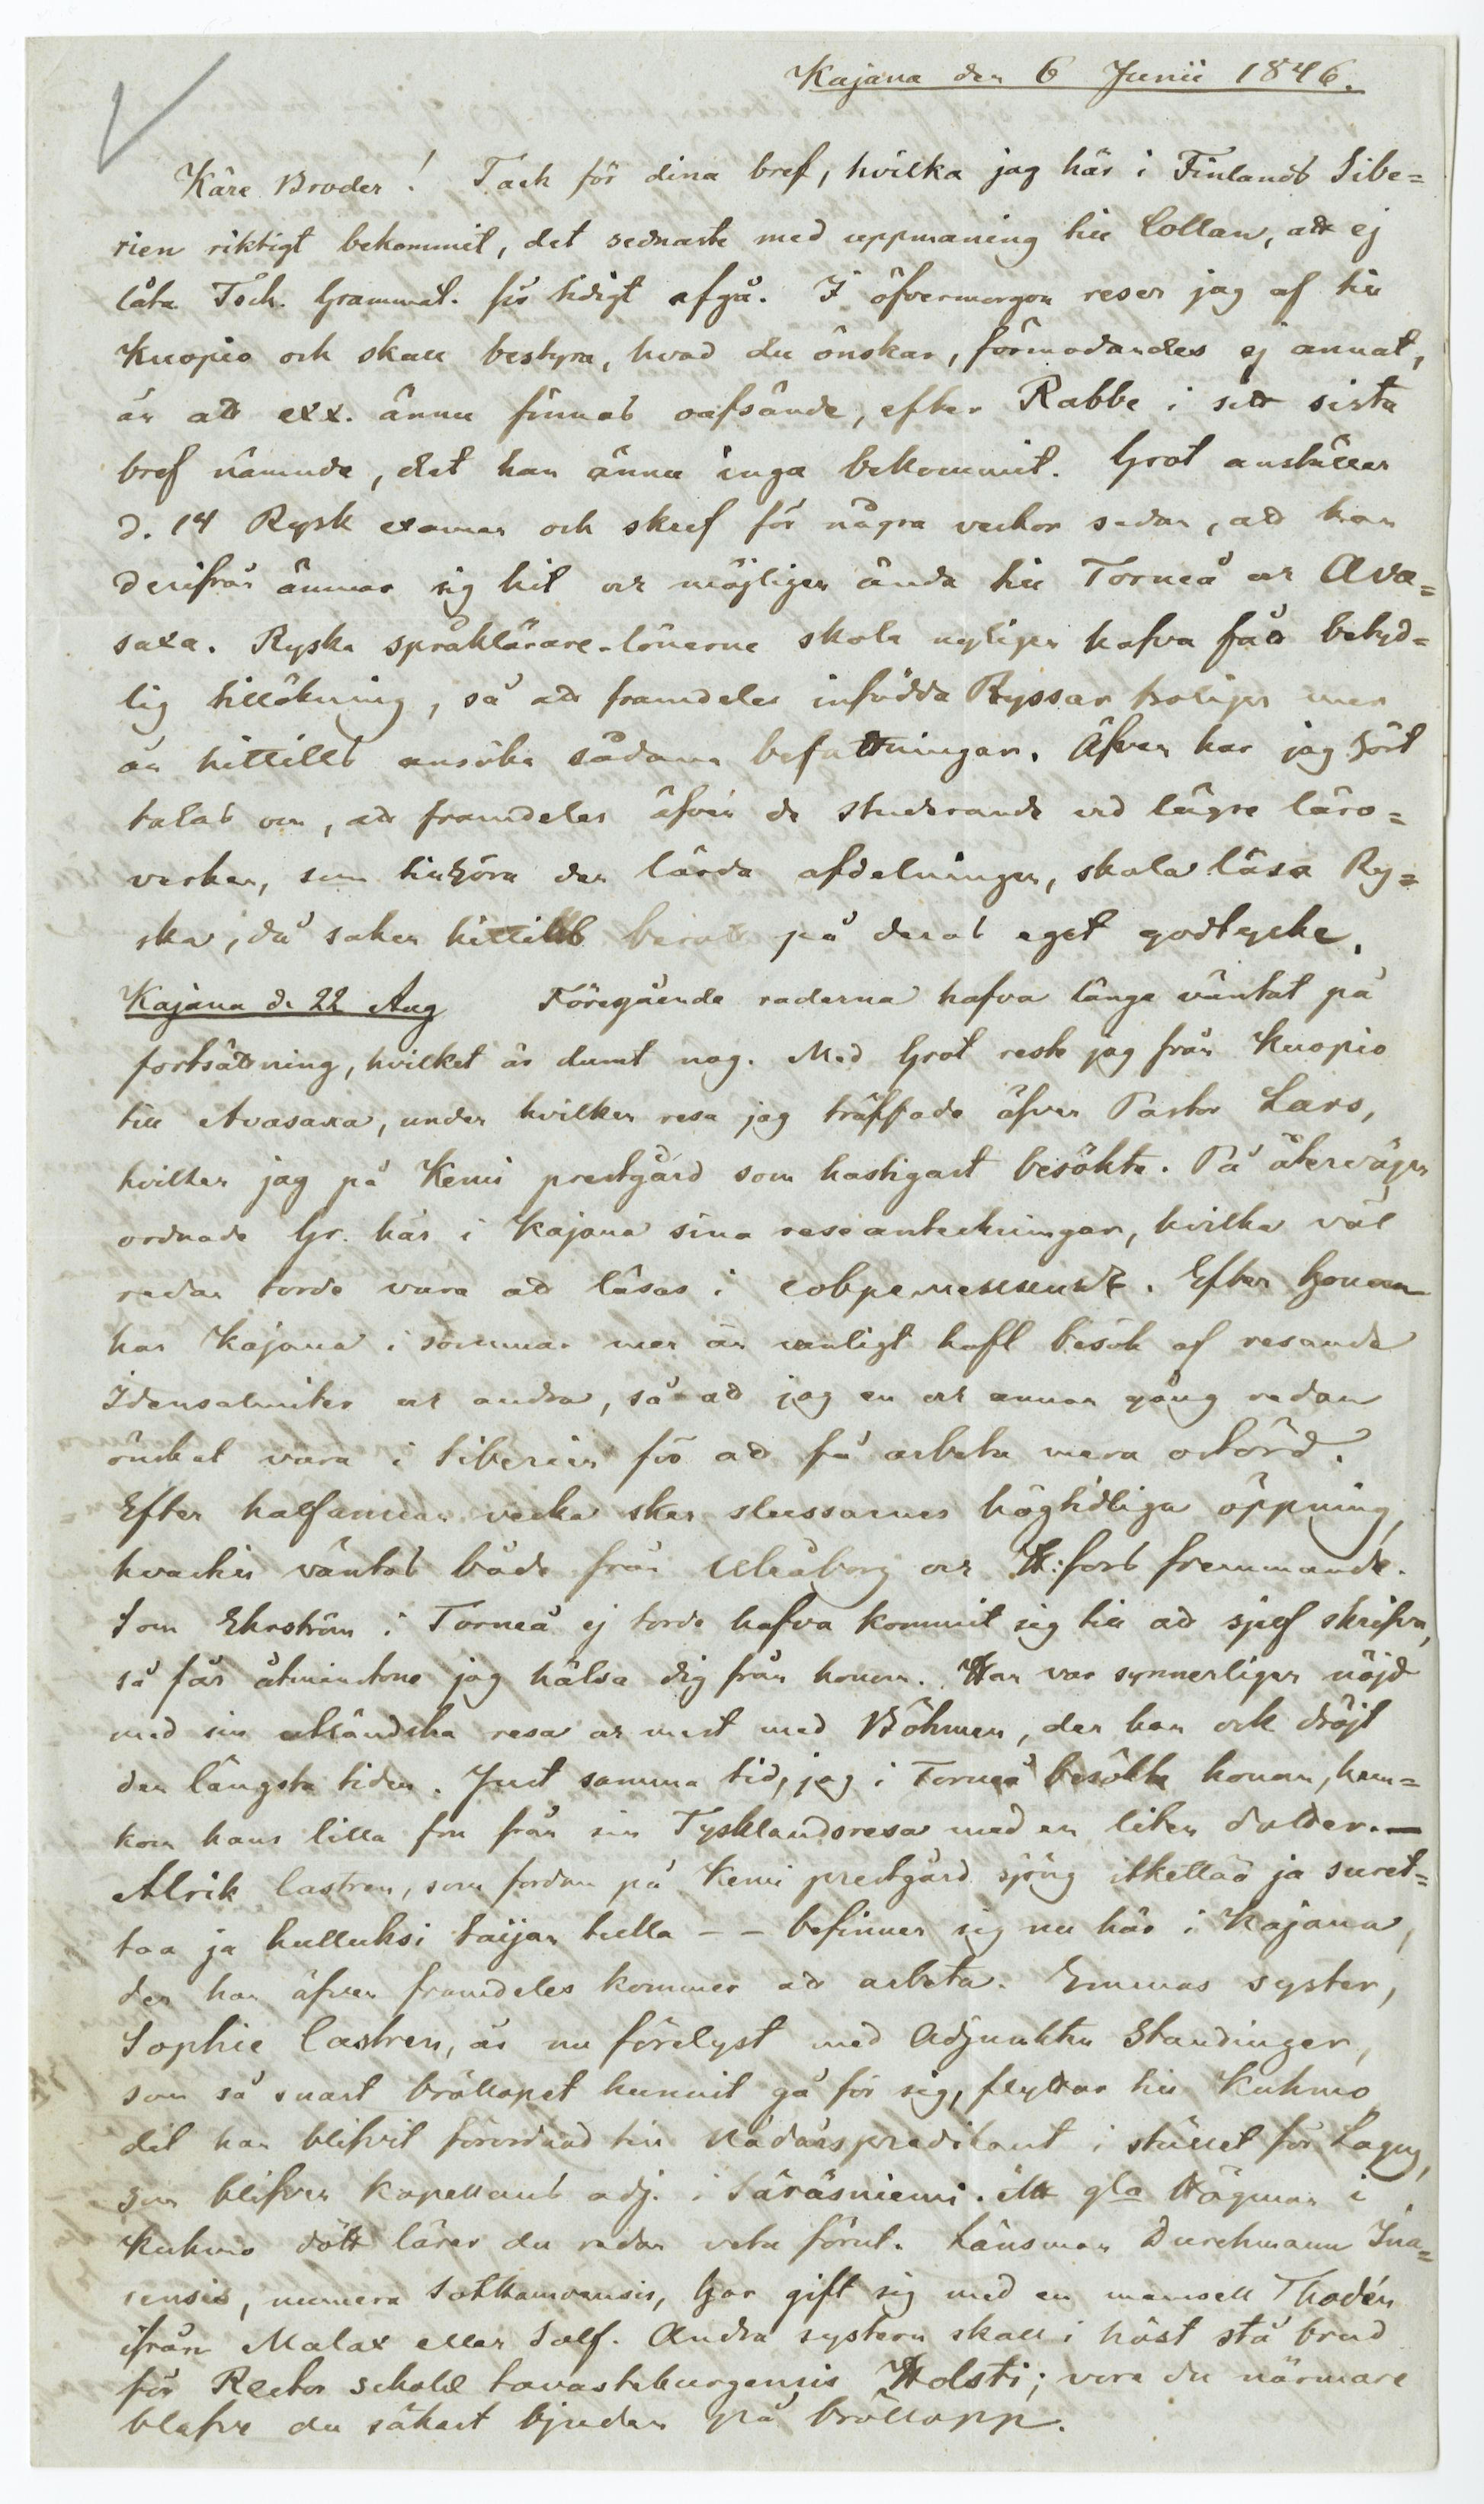 Kajana den 6 Junii 1846.
Käre Broder! Tack för dina bref, hvilka jag här i Finlands Sibe=
rien riktigt bekommit, det sednaste med uppmaning till Collan, att ej
låta Tsch. Grammat. för tidigt afgå. I öfvermorgon reser jag af till
Kuopio och skall bestyra, hvad du önskar, förmodandes ej annat,
än att exx. ännu finnas oafsände, efter Rabbe i sitt sista
bref nämnde, det han ännu inga bekommit. Grot anställer
d. 14 Rysk examen och skref för några veckor sedan, att han
derifrån ämnar sig hit och möjligen ända till Torneå och Ava=
saxa. Ryska språklärare-lönerne skola nyligen hafva fått betyd=
lig tillökning, så att framdeles infödda Ryssar troligen mer
än hittills ansöka sådana befattningar. Äfven har jag hört
talas om, att framdeles äfven de studerande vid lägre läro=
verken, som tillhöra den lärda afdelningen, skola läsa Ry=
ska, då saken hittills berott på deras eget godtycke.
Kajana d. 22 Aug Föregående raderna hafva länge väntat på
fortsättning, hvilket är dumt nog. Med Grot reste jag från Kuopio
till Avasaxa, under hvilken resa jag träffade äfven Pastor Lars,
hvilken jag på Kemi prestgård som hastigast besökte. På återvägen
ordnade Gr. här i Kajana sina reseanteckningar, hvilka väl
redan torde vara att läsas i собременникѣ. Efter honom
har Kajana i sommar mer än vanligt haft besök af resande
Idensalmiter och andra, så att jag en och annan gång redan
önskat vara i Siberien för att få arbeta mera ostörd.
Efter halfannan vecka sker slussarnes högtidliga öppning,
hvartill väntas både från Uleåborg och H:fors fremmande.
Som Ehrström i Torneå ej torde hafva kommit sig till att sjelf skrifva,
så får åtminstone jag hälsa dig från honom. Han var synnerligen nöjd
med sin utländska resa och mest med Böhmen, der han ock dröjt
den längsta tiden. Just samma tid, jag i Torneå besökte honom, hem=
kom hans lilla fru från sin Tysklandsresa med en liten dotter. —
Alrik Castren, som fordom på Kemi prestgård sjöng itkettää ja suret=
taa ja hulluksi taijan tulla – – befinner sig nu här i Kajana,
der han äfven framdeles kommer att arbeta. Emmas syster,
Sophie Castren, är nu förelyst med Adjunkten Staudinger,
som så snart bröllopet hunnit gå för sig, flyttar till Kuhmo
dit han blifvit förordnad till Nådårspredikant i stället för Lagus,
som blifver kapellans adj. i Säräsniemi. Att gla Hägman i
Kuhmo dött lärer du redan veta förut. Länsman Durchmann Ina=
rensis, numera Sotkamoensis, har gift sig med en mamsell Thodén
ifrån Malax eller Solf. Andra systern skall i höst stå brud
för Rector scholæ tavastburgensis Holsti; vore du närmare
blefve du säkert bjuden på bröllopp.